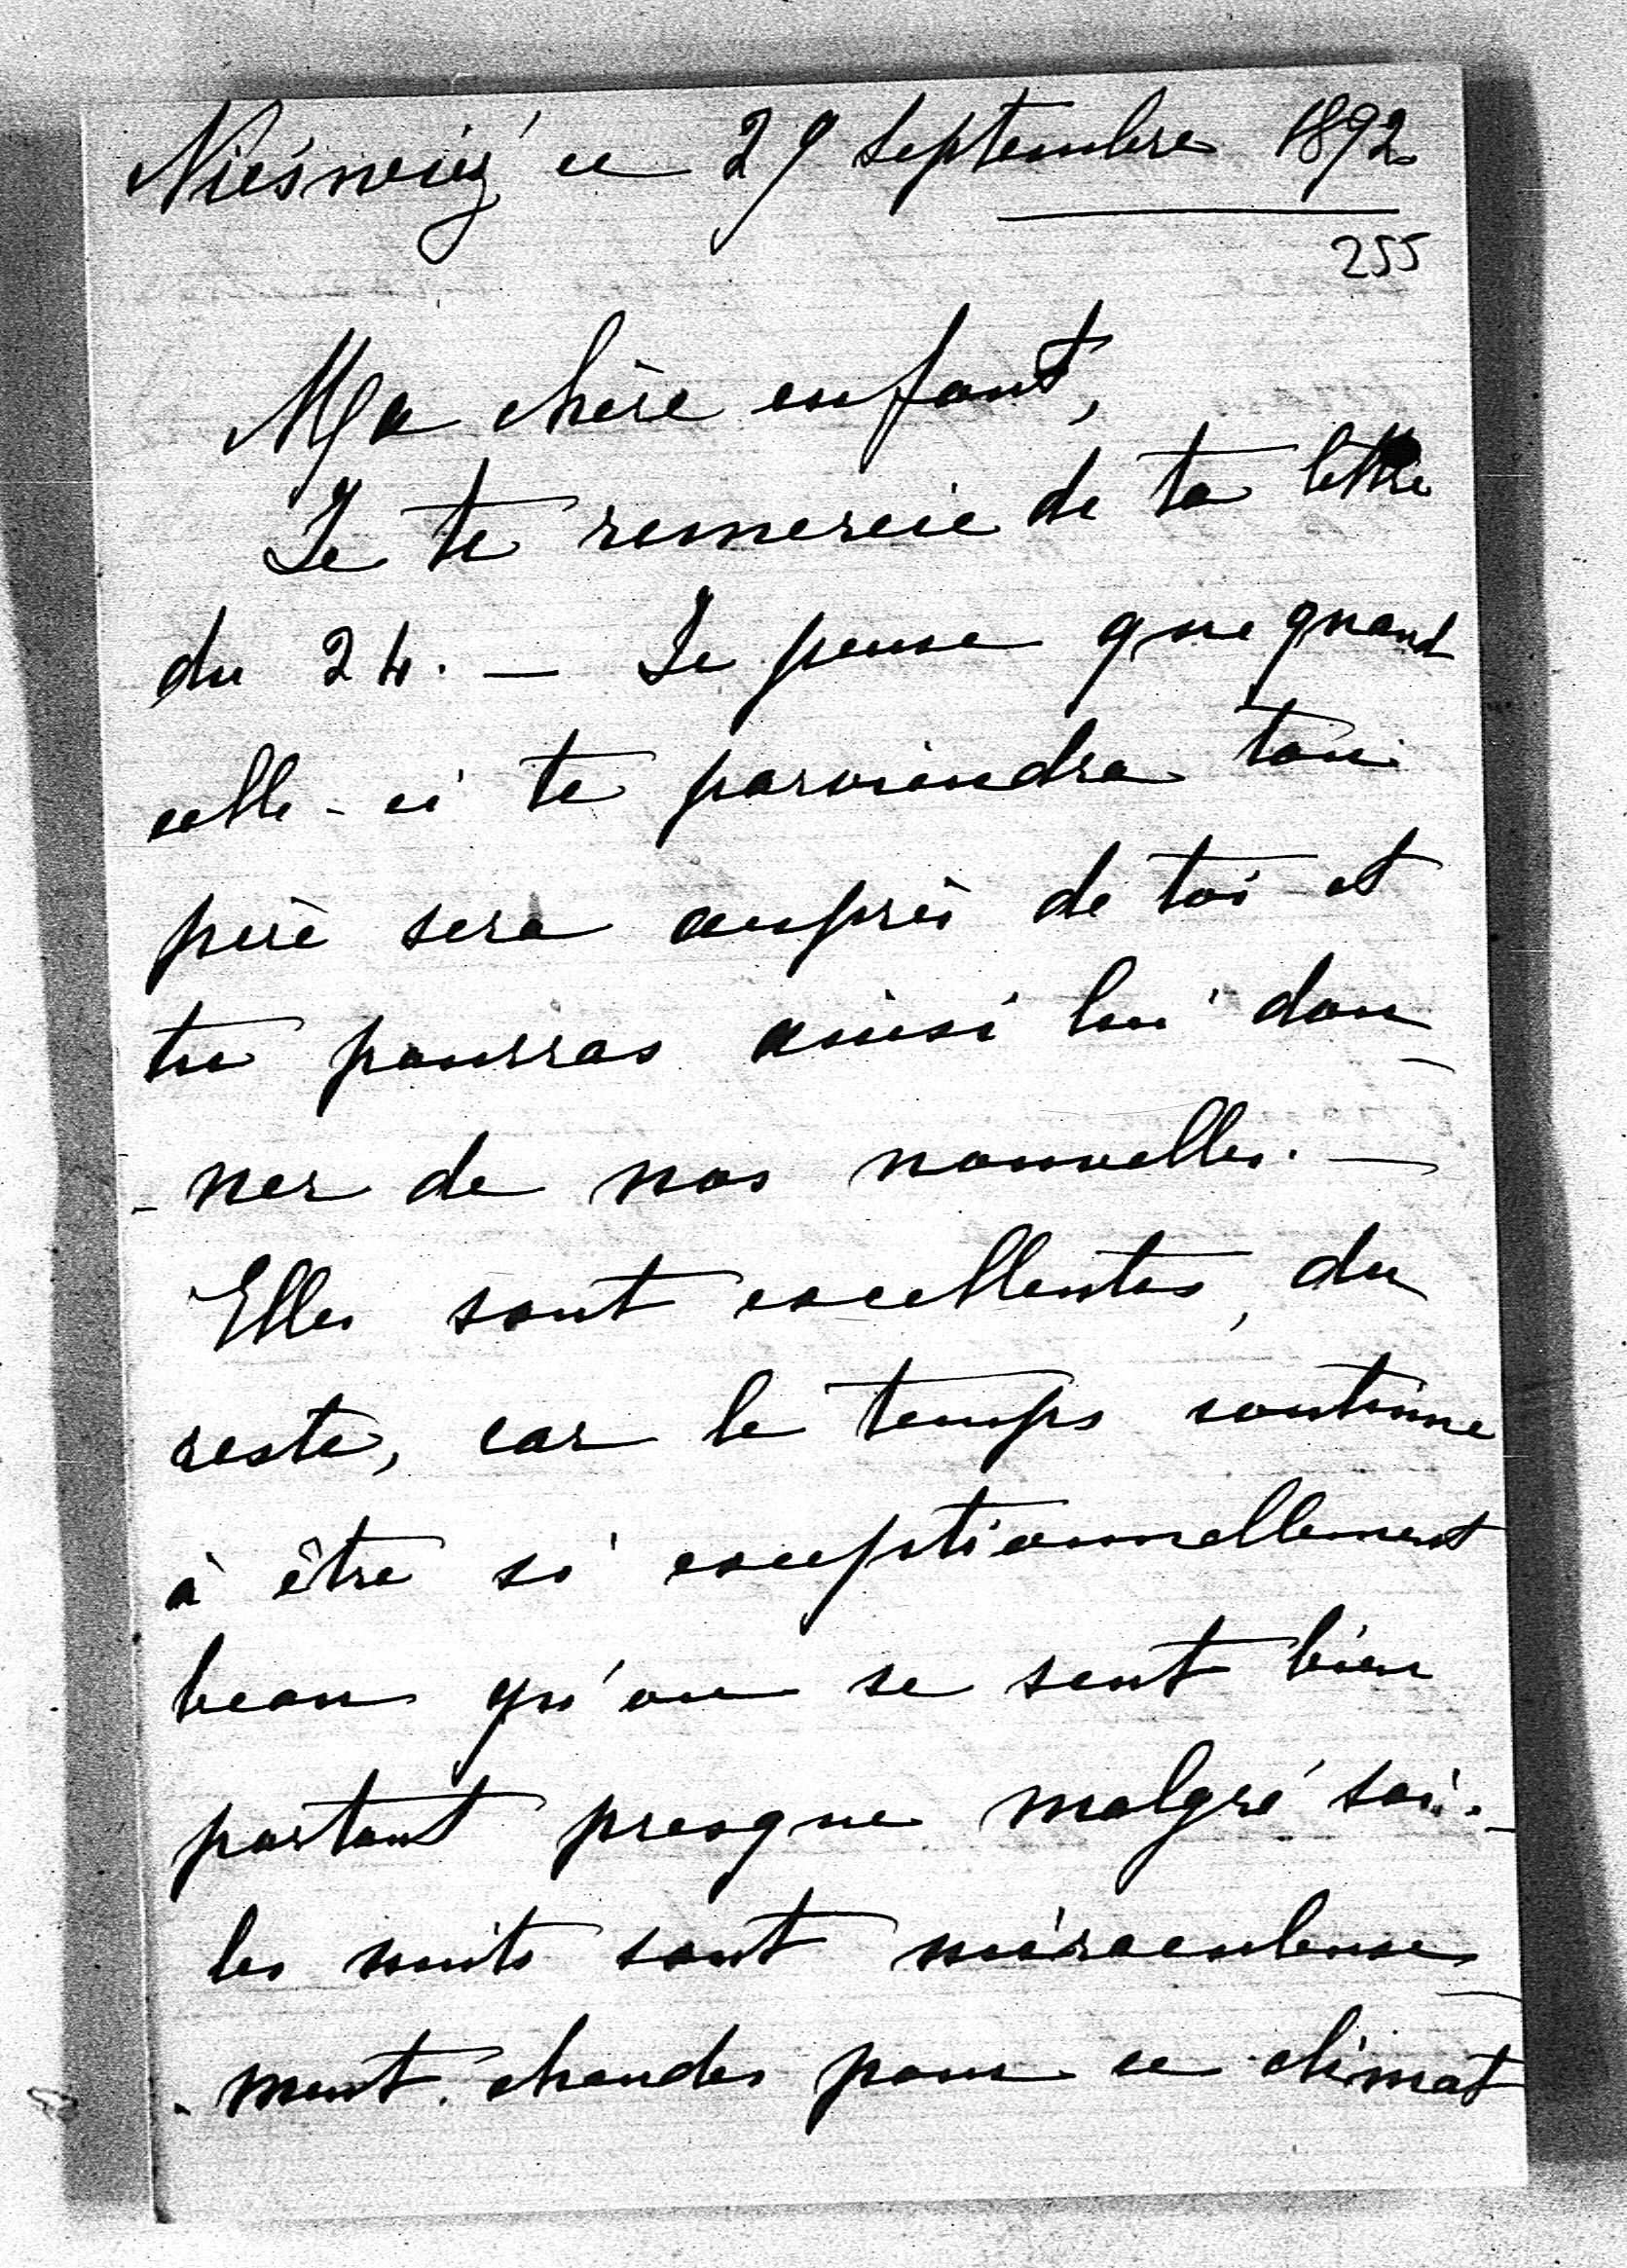 Nieśwież ce 29 Septembre 1892
255
Ma chère enfant,
Je te remercie de ta lettre
du 24. — Je pense que quand
celle-ci te parviendra ton
père sera auprès de toi et
tu pourras ainsi lui don-
-ner de nos nouvelles. —
Elles sont excellentes, du
reste, car le temps continue
à être si exceptionnellement
beau qu'on se sent bien
portant presque malgré soi. —
les nuits sont miraculeuse-
-ment chaudes pour ce climat